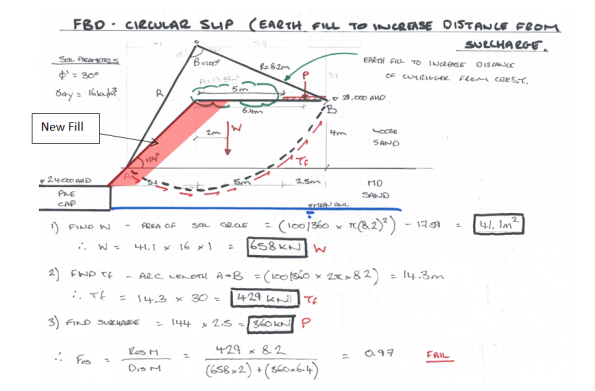 FBD - CIRCULAR SLIP (EARTH FILL TO INCREASE DISTANCE FROM
SURCHARGE.
SOIL PARAMETERS
φ' = 30°
γdry = 16kN/m³
B=100°
R=8.2m
R
A=17.59m²
5m
6.4m
P
EARTH FILL TO INCREASE DISTANCE
OF OUTRIGGER FROM CREST.
28.000 AHD
B
New Fill
2m
W
4m
LOOSE
SAND
44°
Tf
A
24.000 AHD
5m
2.5m
MD
SAND
PILE
CAP
1) FIND W - AREA OF SOIL CIRCLE = (100/360 × π(8.2)²) - 17.59 = 41.1m²
∴ W = 41.1 × 16 × 1 = 658kN W
2) FIND Tf - ARC LENGTH A→B = (100/360 × 2π×8.2) = 14.3m
∴ Tf = 14.3 × 30 = 429 kN Tf
3) FIND SURCHARGE = 144 × 2.5 = 360kN P
∴ Fos = Res M / Dis M = 429 × 8.2 / (658×2) + (360×6.4) = 0.97 FAIL